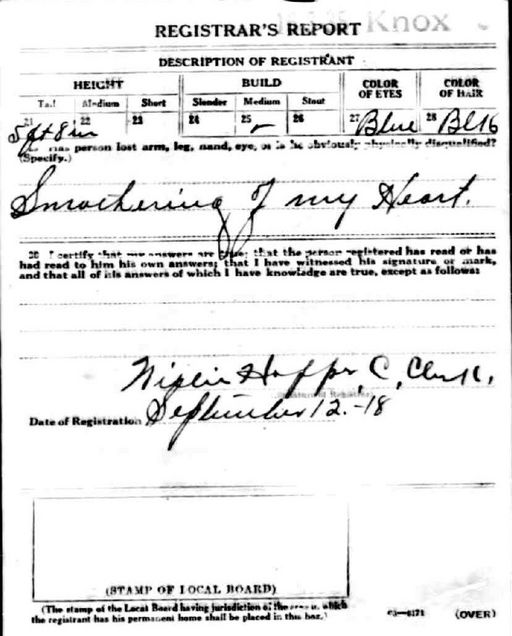 Knox
REGISTRAR'S REPORT
DESCRIPTION OF REGISTRANT
HEIGHT BUILD COLOR OF EYES COLOR OF HAIR
Tall Medium Short Slender Medium Stout
21 22 23 24 25 26 27 Blue 28 Blk
5 ft 8 in
29 Has person lost arm, leg, hand, eye, or is he obviously physically disqualified?
(Specify.)
Smothering of my Heart.
30 I certify that my answers are true; that the person registered has read or has
had read to him his own answers; that I have witnessed his signature or mark,
and that all of his answers of which I have knowledge are true, except as follows:
C. Clerk.
Date of Registration September 12.-18
(STAMP OF LOCAL BOARD)
(The stamp of the Local Board having jurisdiction of the area in which
the registrant has his permanent home shall be placed in this box.)
03-6171 (OVER)